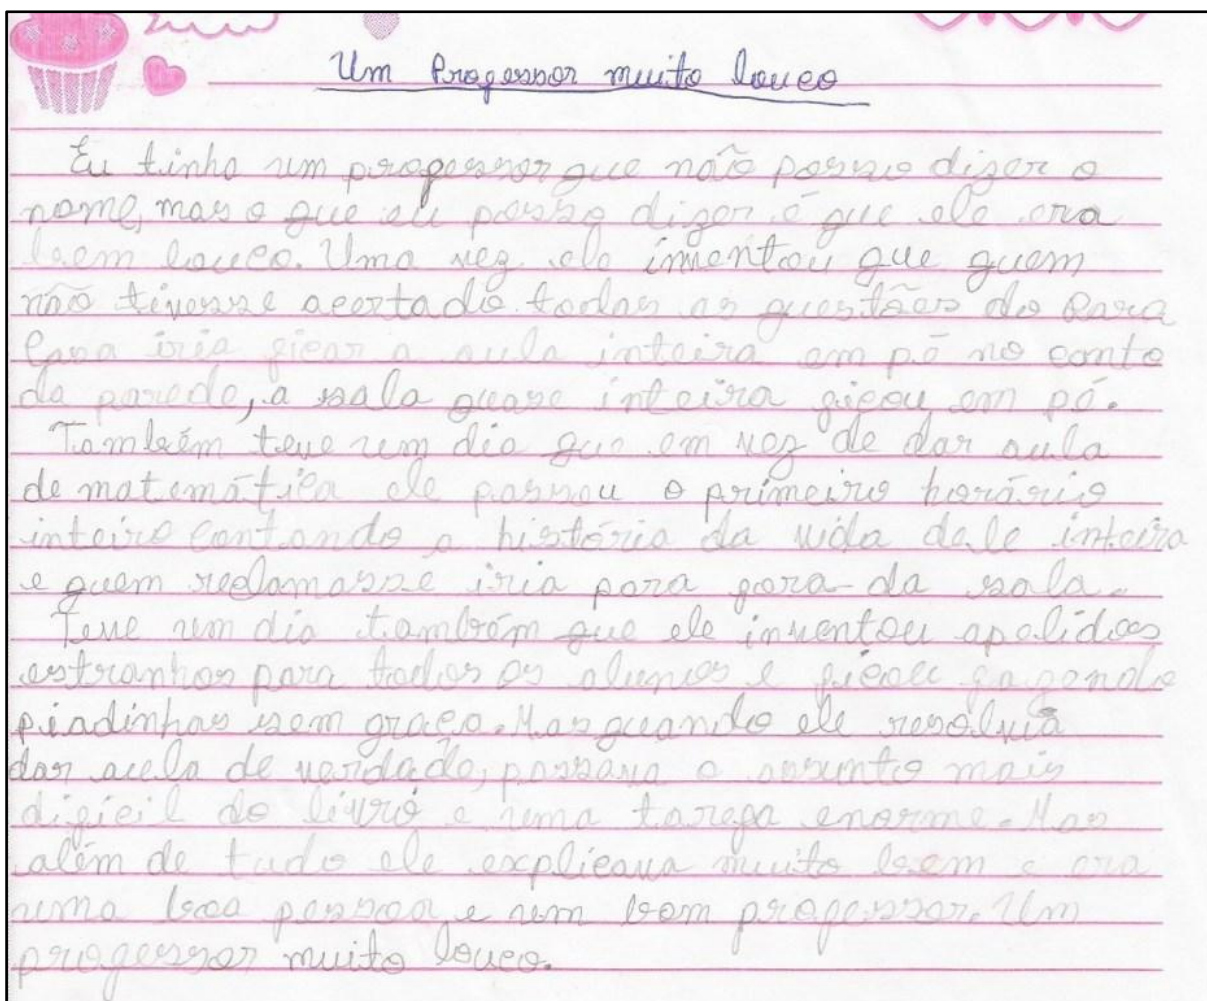 Um Professor muito louco
Eu tinha um professor que não posso dizer o
nome, mas o que eu posso dizer é que ele era
bem louco. Uma vez ele inventou que quem
não tivesse acertado todas as questões do Para
Casa iria ficar a aula inteira em pé no canto
da parede, a sala quase inteira ficou em pé.
Também teve um dia que em vez de dar aula
de matemática ele passou o primeiro horário
inteiro contando a história da vida dele inteira
e quem reclamasse iria para fora da sala.
Teve um dia também que ele inventou apelidos
estranhos para todos os alunos e ficou fazendo
piadinhas sem graça. Mas quando ele resolvia
dar aula de verdade, passava o assunto mais
difícil do livro e uma tarefa enorme. Mas
além de tudo ele explicava muito bem e era
uma boa pessoa e um bom professor. Um
professor muito louco.